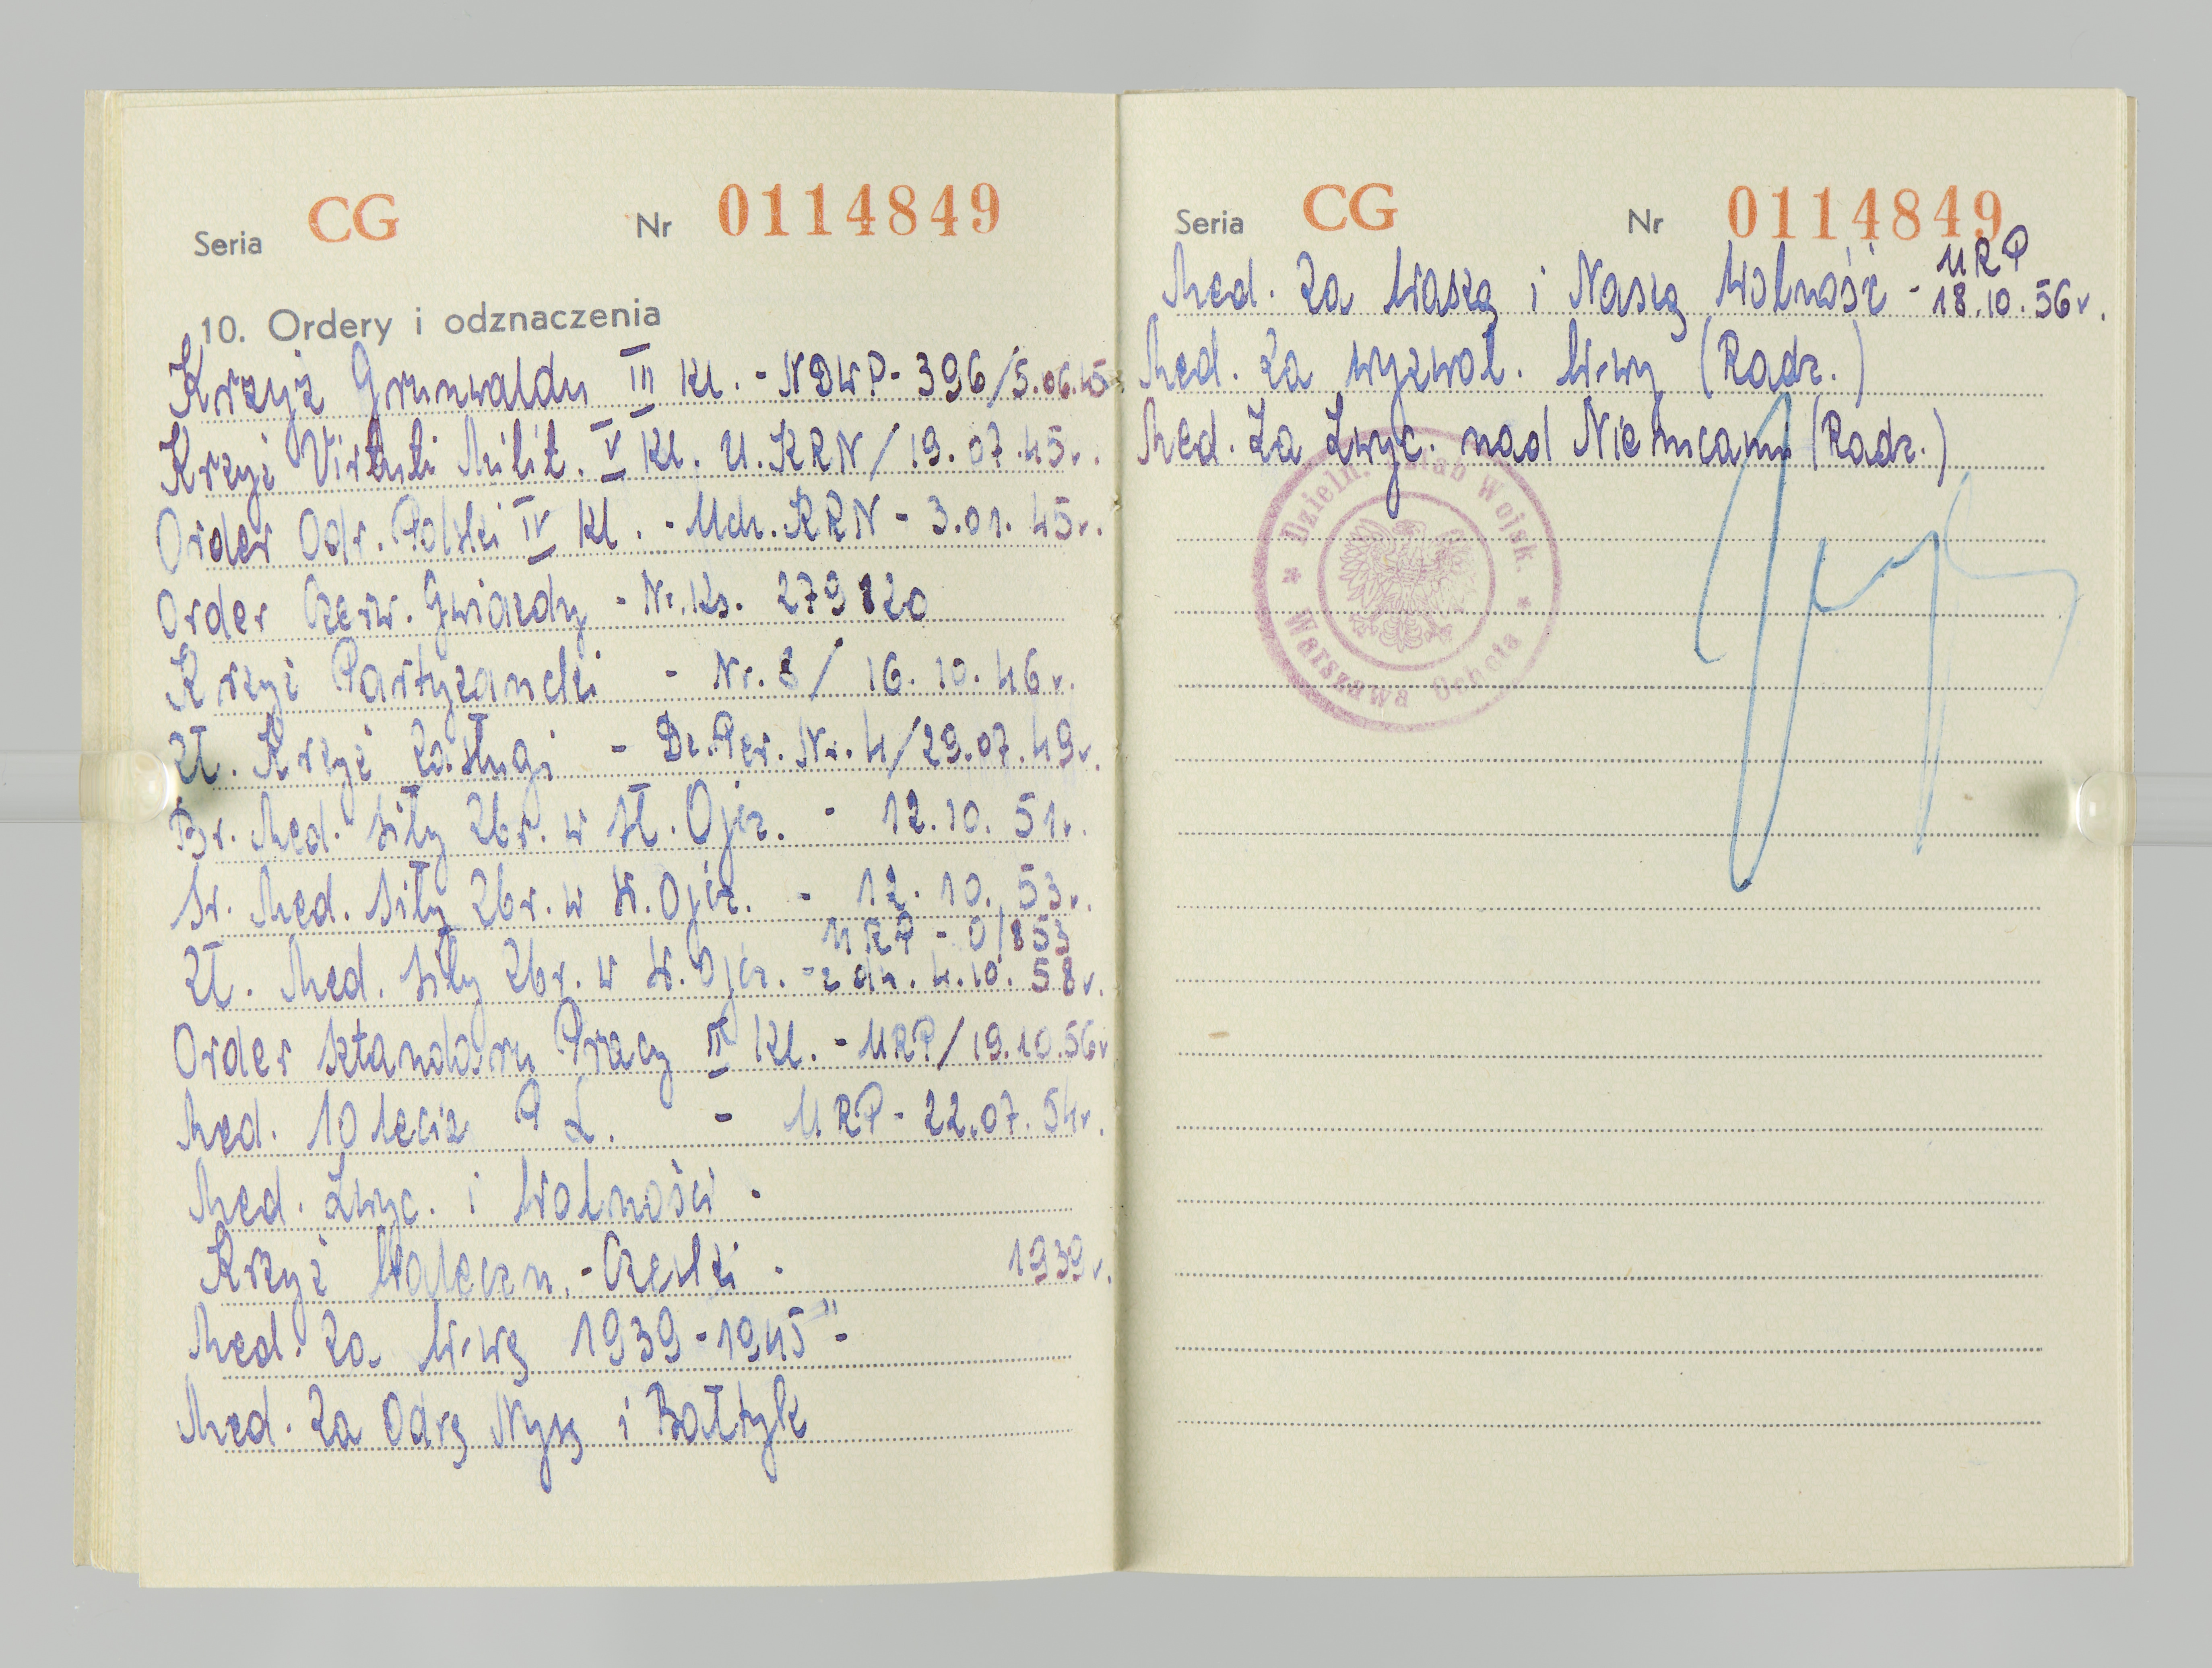 Seria CG Nr 0114849
10. Ordery i odznaczenia
Krzyż Grunwaldu III Kl. - NDWP - 396/5.06.45
Krzyż Virtuti Milit. V Kl. U. KRN/19.07.45r.
Order Odr. Polski IV Kl. - Uch. KRN - 3.01.45r.
Order Czerw. Gwiazdy - Nr. Ks. 279820
Krzyż Partyzancki - Nr. 8/ 16.10.46r.
Zł. Krzyż Zasługi - Dz. Per. Nr. 4/29.07.49r.
Br. Med. Siły Zbr. w Sł. Ojcz. - 12.10.51r.
Sr. Med. Siły Zbr. w Sł. Ojcz. - 12.10.53r.
URP - 0/853
Zł. Med. Siły Zbr. w Sł. Ojcz. - z dn. 4.10.58r.
Order Sztandaru Pracy II Kl. - URP/19.10.56r
Med. 10 lecia P L. - URP - 22.07.54r.
Med. Zwyc. i Wolności -
Krzyż Waleczn. - Czeski - 1939r.
Med. Za W-wę 1939-1945" -
Med. Za Odrę Nysę i Bałtyk
Seria CG Nr 0114849
Med. Za Waszą i Naszą Wolność - URP 18.10.56r.
Med. Za wyzwol. W-wy (Radz.)
Med. Za Zwyc. nad Niemcami (Radz.)
Dzieln. Sztab Wojsk.
Warszawa Ochota